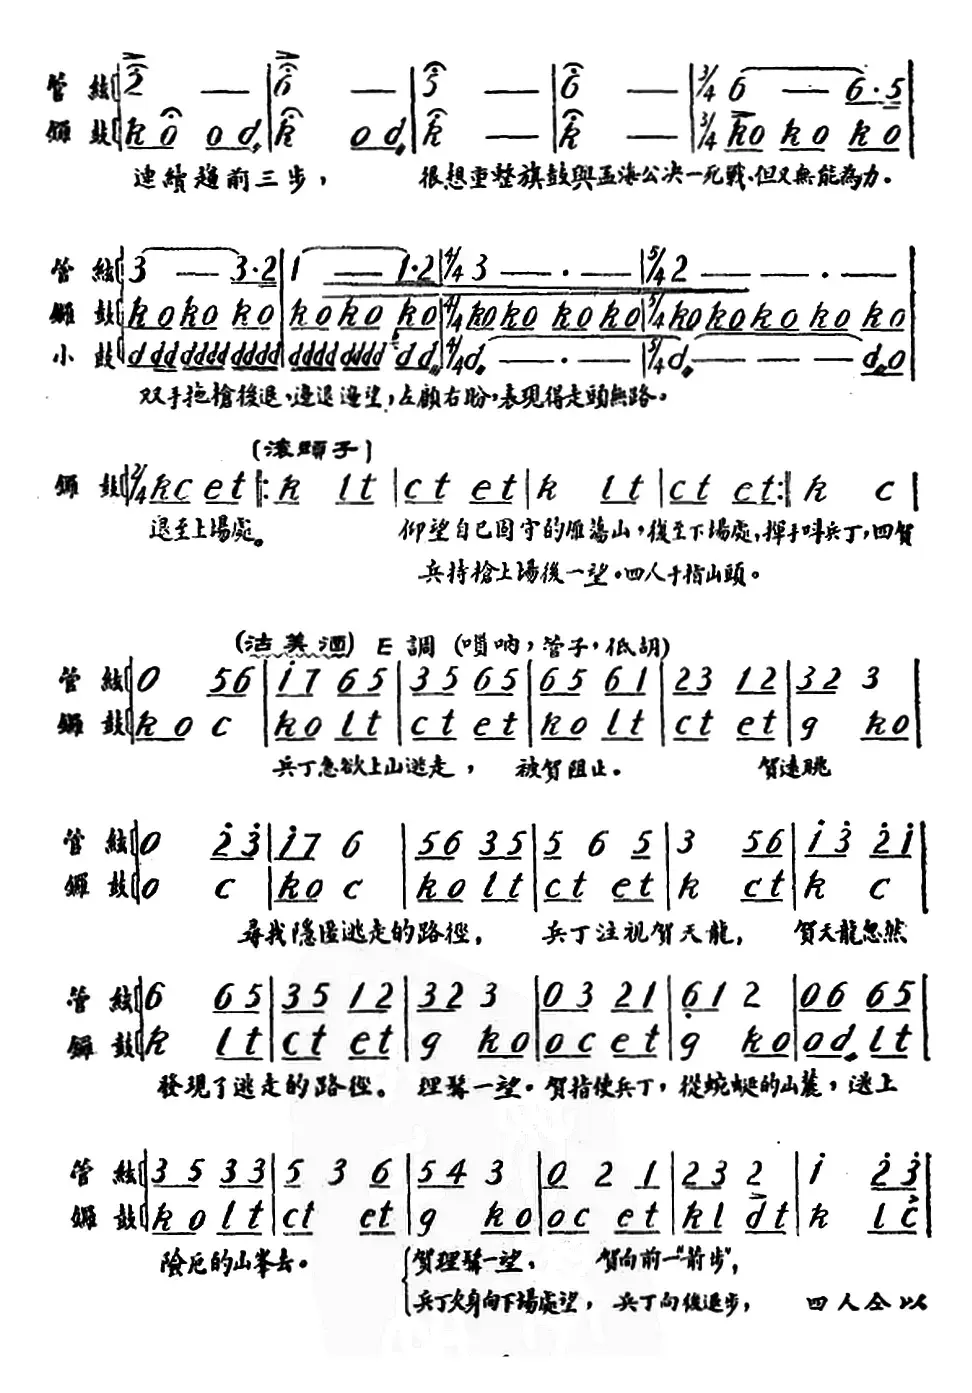 管絃 2 — | 6 — | 5 — | 6 — | 3/4 6 — 6·5 |
鑼鼓 k o o d | k o d | k — | k — | 3/4 ko ko ko |
連續趨前三步， 很想重整旗鼓與孟海公決一死戰、但又無能為力。
管絃 3 — 3·2 | 1 — 1·2 | 4/4 3 — · — | 5/4 2 — — · — |
鑼鼓 ko ko ko | ko ko ko | 4/4 ko ko ko ko | 5/4 ko ko ko ko ko |
小鼓 d dd dddd dddd | dddd dddd d d | 4/4 d — · — | 5/4 d — · — d o |
双手拖槍後退、邊退邊望，左顧右盼，表現得走頭無路。
(滾頭子)
鑼鼓 2/4 kc et |: k lt | ct et | k lt | ct et :| k c |
退至上場處。 仰望自己固守的雁蕩山，後至下場處，揮手叫兵丁，四賀
兵持槍上場後一望。四人手指山頭。
(沽美酒) E調 (嗩吶，管子，低胡)
管絃 0 56 | i7 65 | 35 65 | 65 61 | 23 12 | 32 3 |
鑼鼓 ko c | ko lt | ct et | ko lt | ct et | g ko |
兵丁急欲上山逃走， 被賀阻止。 賀遠眺
管絃 0 2̇3̇ | i7 6 | 56 35 | 5 6 5 | 3 56 | i3̇ 2̇i |
鑼鼓 o c | ko c | ko lt | ct et | k ct | k c |
尋找隱匿逃走的路徑， 兵丁注視賀天龍， 賀天龍忽然
管絃 6 65 | 35 12 | 32 3 | 03 21 | 6̣1 2 | 06 65 |
鑼鼓 k lt | ct et | g ko | oc et | g ko | od lt |
發現了逃走的路徑。 理髯一望。賀指使兵丁，從蜿蜒的山麓，逃上
管絃 35 33 | 5 3 6 | 54 3 | 0 2 1 | 23 2 | i 2̇3̇ |
鑼鼓 ko lt | ct et | g ko | oc et | kl dt | k lc |
險厄的山峯去。 賀理髯一望、 賀向前一"前步"，
兵丁欠身向下場處望， 兵丁向後退步， 四人仝以